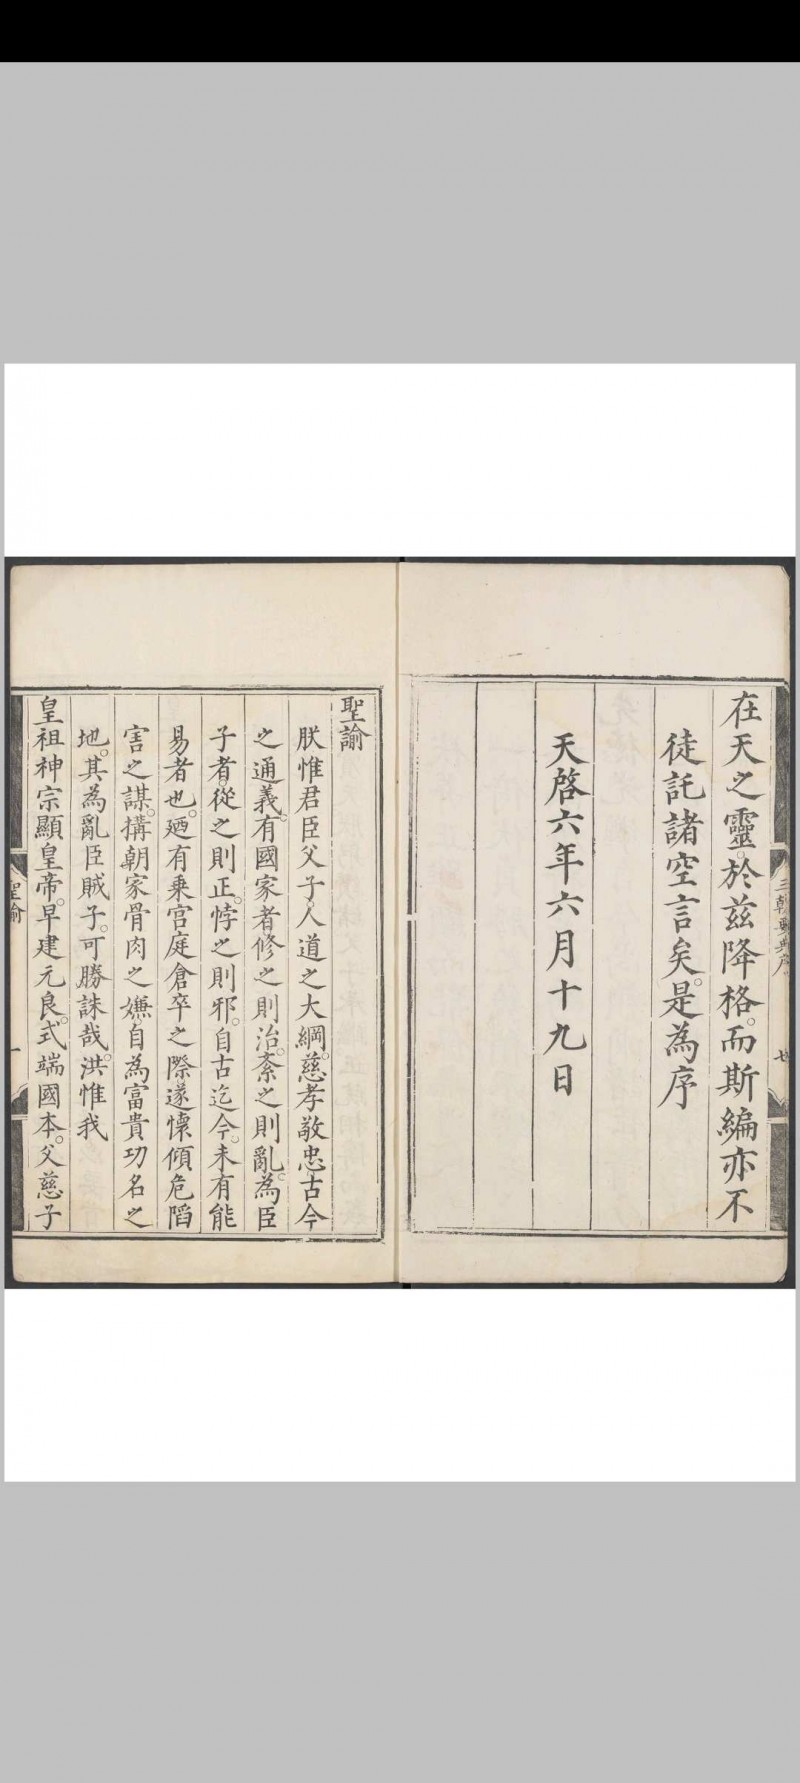 在天之靈。於茲降格。而斯編亦不
徒託諸空言矣。是為序
天啓六年六月十九日
三朝要典序
聖諭
朕惟君臣父子。人道之大綱。慈孝敬忠。古今
之通義。有國家者修之則治。紊之則亂。為臣
子者。從之則正。悖之則邪。自古迄今。未有能
易者也。廼有乗宫庭倉卒之際。遂懷傾危陷
害之謀。搆朝家骨肉之嫌。自為富貴功名之
地。其為亂臣賊子。可勝誅哉。洪惟我
皇祖神宗顯皇帝。早建元良。式端國本。父慈子
聖諭
一